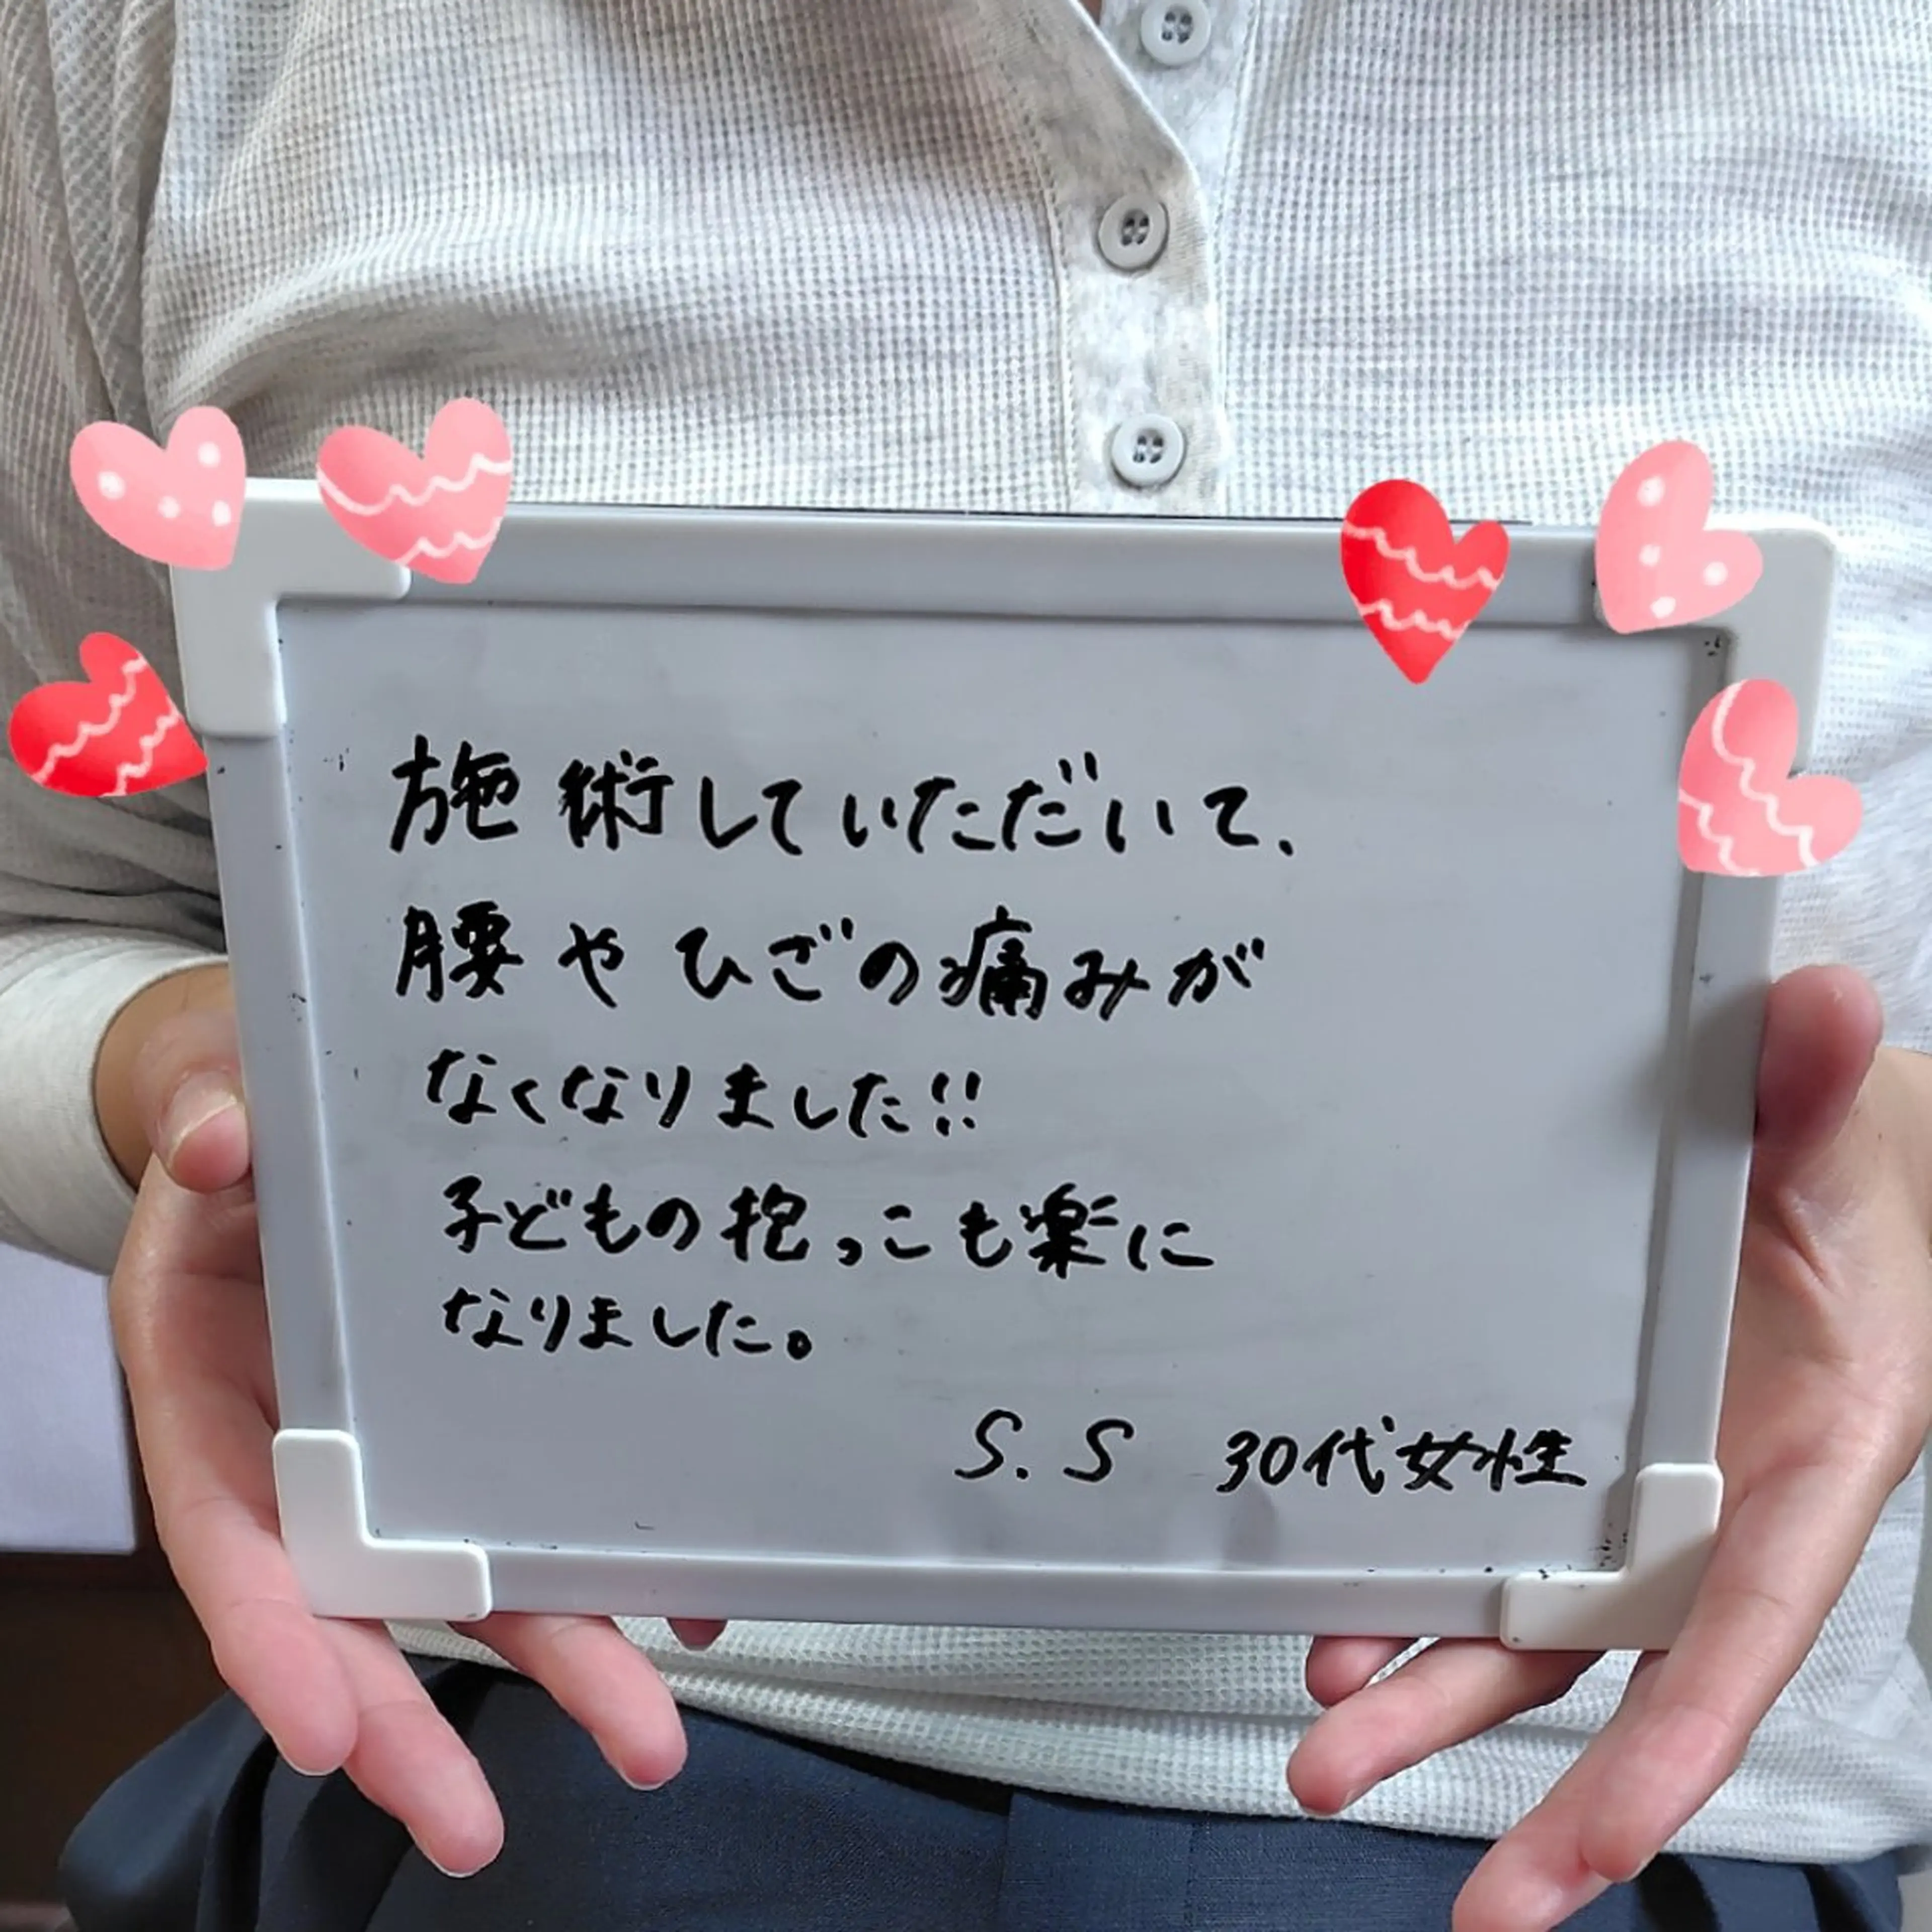 施術していただいて、
腰やひざの痛みが
なくなりました!!
子どもの抱っこも楽に
なりました。
S.S 30代女性